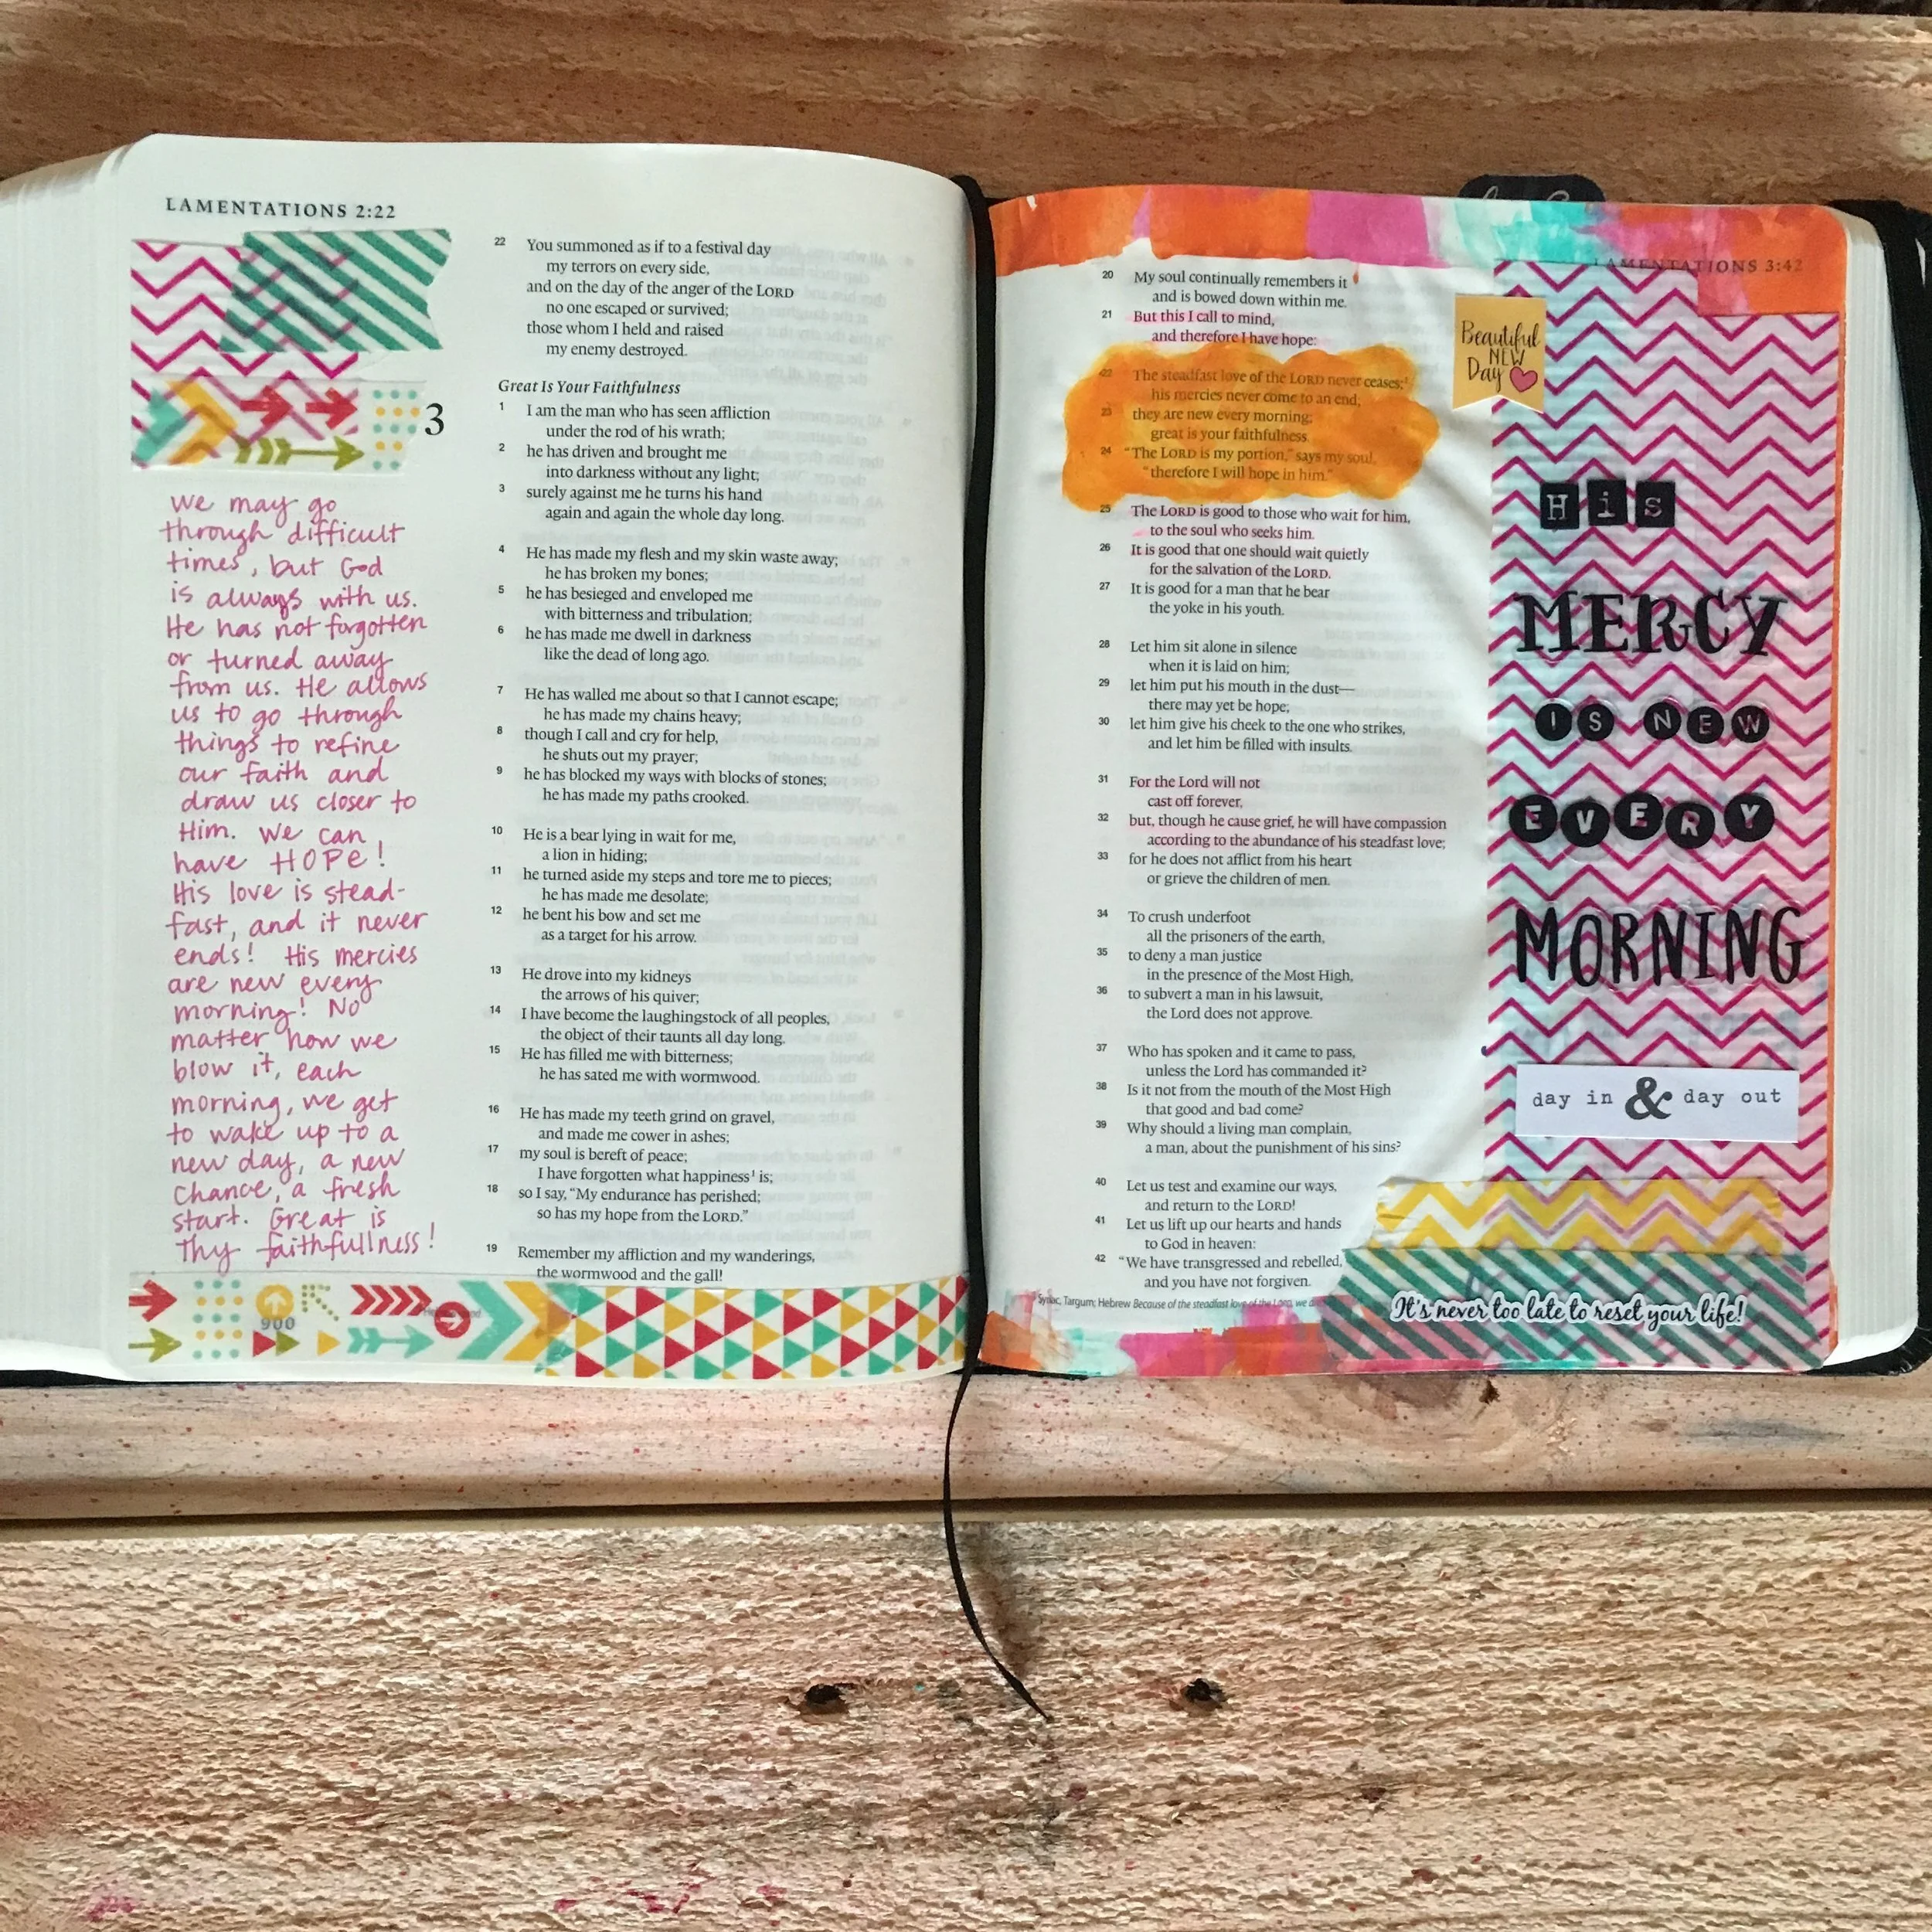 LAMENTATIONS 2:22
3
we may go
through difficult
times, but God
is always with us.
He has not forgotten
or turned away
from us. He allows
us to go through
things to refine
our faith and
draw us closer to
Him. We can
have HOPE!
His love is stead-
fast, and it never
ends! His mercies
are new every
morning! No
matter how we
blow it, each
morning, we get
to wake up to a
new day, a new
chance, a fresh
start. Great is
Thy faithfullness!
900
22 You summoned as if to a festival day
my terrors on every side,
and on the day of the anger of the LORD
no one escaped or survived;
those whom I held and raised
my enemy destroyed.
Great Is Your Faithfulness
1 I am the man who has seen affliction
under the rod of his wrath;
2 he has driven and brought me
into darkness without any light;
3 surely against me he turns his hand
again and again the whole day long.
4 He has made my flesh and my skin waste away;
he has broken my bones;
5 he has besieged and enveloped me
with bitterness and tribulation;
6 he has made me dwell in darkness
like the dead of long ago.
7 He has walled me about so that I cannot escape;
he has made my chains heavy;
8 though I call and cry for help,
he shuts out my prayer;
9 he has blocked my ways with blocks of stones;
he has made my paths crooked.
10 He is a bear lying in wait for me,
a lion in hiding;
11 he turned aside my steps and tore me to pieces;
he has made me desolate;
12 he bent his bow and set me
as a target for his arrow.
13 He drove into my kidneys
the arrows of his quiver;
14 I have become the laughingstock of all peoples,
the object of their taunts all day long.
15 He has filled me with bitterness;
he has sated me with wormwood.
16 He has made my teeth grind on gravel,
and made me cower in ashes;
17 my soul is bereft of peace;
I have forgotten what happiness¹ is;
18 so I say, “My endurance has perished;
so has my hope from the LORD.”
19 Remember my affliction and my wanderings,
the wormwood and the gall!
LAMENTATIONS 3:42
20 My soul continually remembers it
and is bowed down within me.
21 But this I call to mind,
and therefore I have hope:
22 The steadfast love of the LORD never ceases;¹
his mercies never come to an end;
23 they are new every morning;
great is your faithfulness.
24 “The LORD is my portion,” says my soul,
“therefore I will hope in him.”
25 The LORD is good to those who wait for him,
to the soul who seeks him.
26 It is good that one should wait quietly
for the salvation of the LORD.
27 It is good for a man that he bear
the yoke in his youth.
28 Let him sit alone in silence
when it is laid on him;
29 let him put his mouth in the dust—
there may yet be hope;
30 let him give his cheek to the one who strikes,
and let him be filled with insults.
31 For the Lord will not
cast off forever,
32 but, though he cause grief, he will have compassion
according to the abundance of his steadfast love;
33 for he does not afflict from his heart
or grieve the children of men.
34 To crush underfoot
all the prisoners of the earth,
35 to deny a man justice
in the presence of the Most High,
36 to subvert a man in his lawsuit,
the Lord does not approve.
37 Who has spoken and it came to pass,
unless the Lord has commanded it?
38 Is it not from the mouth of the Most High
that good and bad come?
39 Why should a living man complain,
a man, about the punishment of his sins?
40 Let us test and examine our ways,
and return to the LORD!
41 Let us lift up our hearts and hands
to God in heaven:
42 “We have transgressed and rebelled,
and you have not forgiven.
Syriac, Targum; Hebrew Because of the steadfast love of the LORD, we
Beautiful
NEW
Day
His
MERCY
IS NEW
EVERY
MORNING
day in & day out
It's never too late to reset your life!